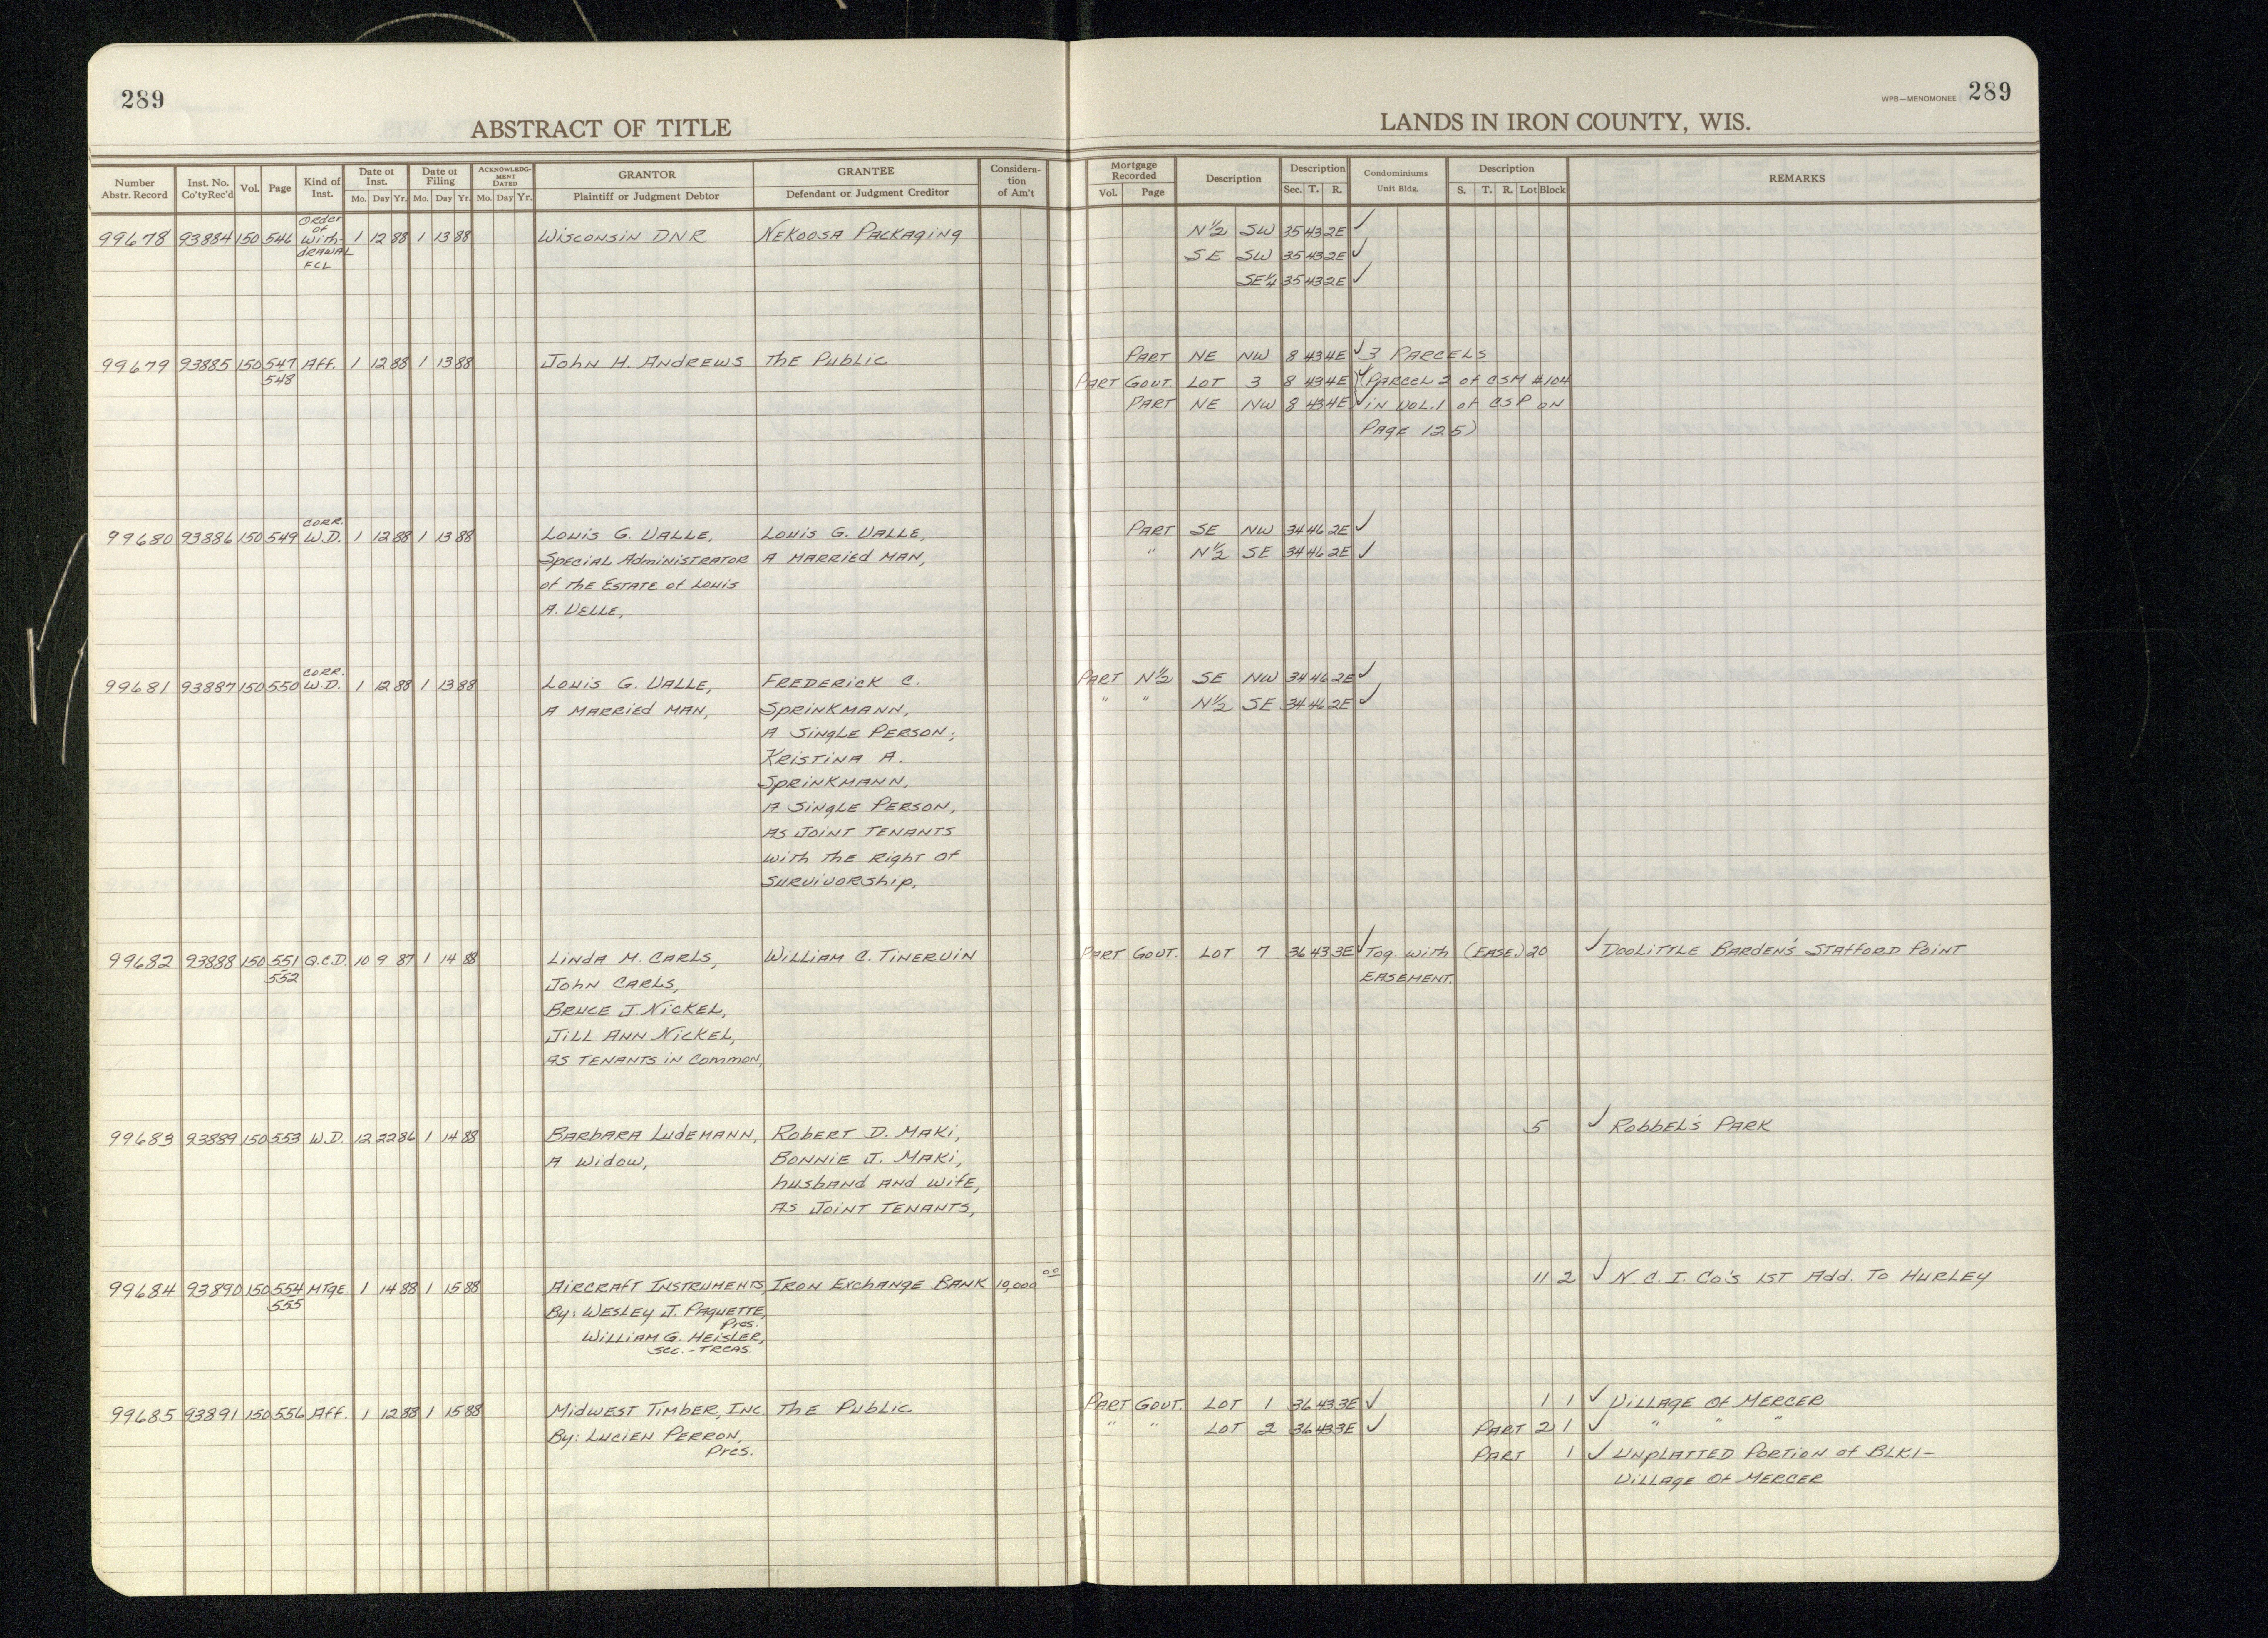 289
ABSTRACT OF TITLE
LANDS IN IRON COUNTY, WIS.
WPB—MENOMONEE 289
Number Abstr. Record | Inst. No. Co'ty Rec'd | Vol. | Page | Kind of Inst. | Date of Inst. Mo. Day Yr. | Date of Filing Mo. Day Yr. | ACKNOWLEDGMENT DATED Mo. Day Yr. | GRANTOR Plaintiff or Judgment Debtor | GRANTEE Defendant or Judgment Creditor | Consideration of Am't | Mortgage Recorded Vol. Page | Description | Description Sec. T. R. | Condominiums Unit Bldg. | Description S. T. R. Lot Block | REMARKS
99678 93884 150 546 Order of With-drawal FCL 1 12 88 1 13 88 Wisconsin DNR Nekoosa Packaging N½ SW 35 43 2E ✓
SE SW 35 43 2E ✓
SE¼ 35 43 2E ✓
99679 93885 150 547 Aff. 1 12 88 1 13 88 John H. Andrews The Public Part NE NW 8 43 4E ✓ 3 Parcels
548 Part Govt. Lot 3 8 43 4E ✓ (Parcel 2 of CSM #104
Part NE NW 8 43 4E ✓ in Vol. 1 of CSP on
Page 125)
99680 93886 150 549 Corr. W.D. 1 12 88 1 13 88 Louis G. Valle, Louis G. Valle, Part SE NW 34 46 2E ✓
Special Administrator A Married Man, " N½ SE 34 46 2E ✓
of the Estate of Louis
A. Velle,
99681 93887 150 550 Corr. W.D. 1 12 88 1 13 88 Louis G. Valle, Frederick C. Part N½ SE NW 34 46 2E ✓
A Married Man, Sprinkmann, " " N½ SE 34 46 2E ✓
A Single Person,
Kristina A.
Sprinkmann,
A Single Person,
As Joint Tenants
with the Right of
Survivorship,
99682 93888 150 551 Q.C.D. 10 9 87 1 14 88 Linda M. Carls, William C. Tinervin Part Govt. Lot 7 36 43 3E ✓ Tog. with (Ease.) 20 ✓ Doolittle Barden's Stafford Point
552 John Carls, Easement.
Bruce J. Nickel,
Jill Ann Nickel,
As Tenants in Common,
99683 93889 150 553 W.D. 12 22 86 1 14 88 Barbara Ludemann, Robert D. Maki, 5 ✓ Robbel's Park
A Widow, Bonnie J. Maki,
husband and wife,
As Joint Tenants,
99684 93890 150 554 Mtge. 1 14 88 1 15 88 Aircraft Instruments, Iron Exchange Bank 10,000 00 11 2 ✓ N.C.I. Co's 1st Add. To Hurley
555 By: Wesley J. Paquette,
Pres.
William G. Heisler,
Sec.-Treas.
99685 93891 150 556 Aff. 1 12 88 1 15 88 Midwest Timber, Inc The Public Part Govt. Lot 1 36 43 3E ✓ 1 1 ✓ Village Of Mercer
By: Lucien Perron, " " Lot 2 36 43 3E ✓ Part 2 1 ✓ " " "
Pres. Part 1 ✓ Unplatted Portion of Blk 1 –
Village Of Mercer